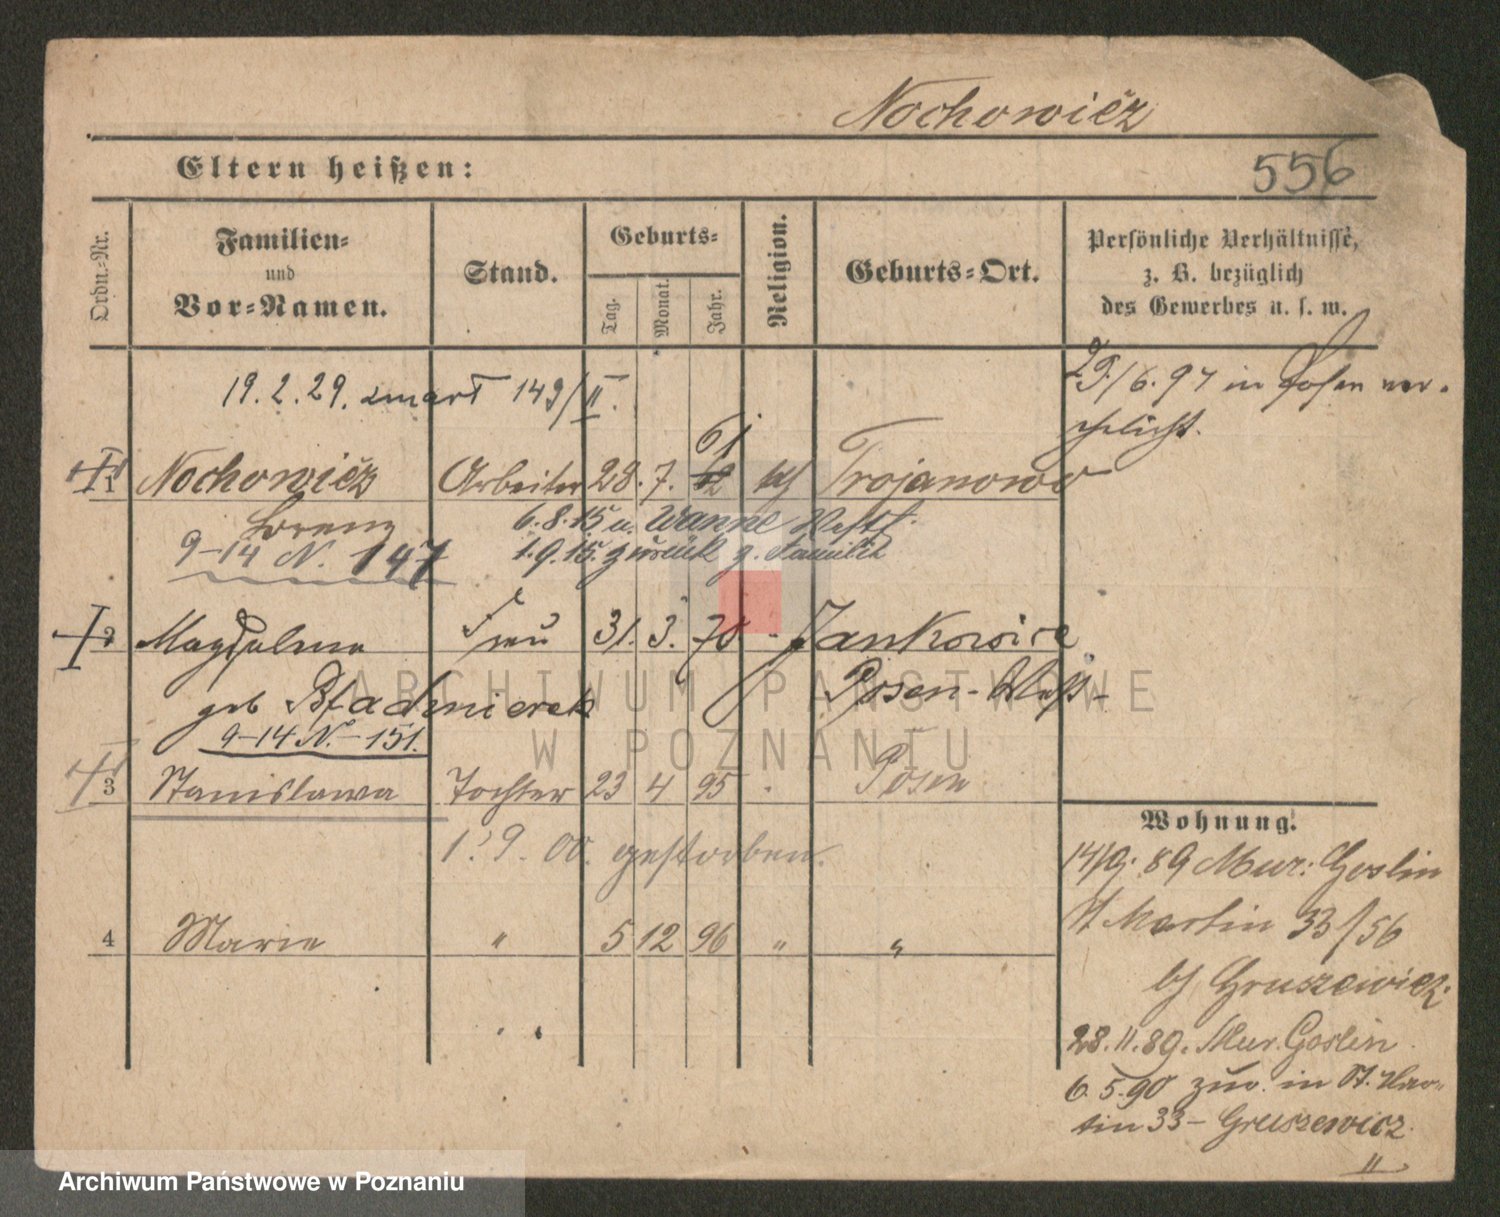 Nochowicz
Eltern heißen:
556
Ordn.-Nr.
Familien-
und
Vor-Namen.
Stand.
Geburts-
Tag.
Monat.
Jahr.
Religion.
Geburts-Ort.
Persönliche Verhältnisse,
z. B. bezüglich
des Gewerbes u. s. w.
19. 2. 29. 149/II.
29./6. 97 in Posen ver-
ehelicht.
1 Nochowicz Arbeiter 28. 7. 61 Trojanowo
Lorenz 6. 8. 15 n. Wanne Westf.
9-14 N. 147 1. 9. 15. zurück z. Familie
2 Magdalena Frau 31. 3. 70 Jankowice
geb Posen-West
9-14 No. 151.
3 Stanislawa Tochter 23 4 95 Posen
1. 9. 00. gestorben.
4 Marie " 5 12 96 " "
Wohnung.
14/9. 89 Mur: Goslin
St Martin 33/56
b/ Gruszewicz.
28. 11. 89. Mur. Goslin
6. 5. 90 zur. in St. Mar-
tin 33 - Gruszewicz.
II
ARCHIWUM PAŃSTWOWE
W POZNANIU
Archiwum Państwowe w Poznaniu